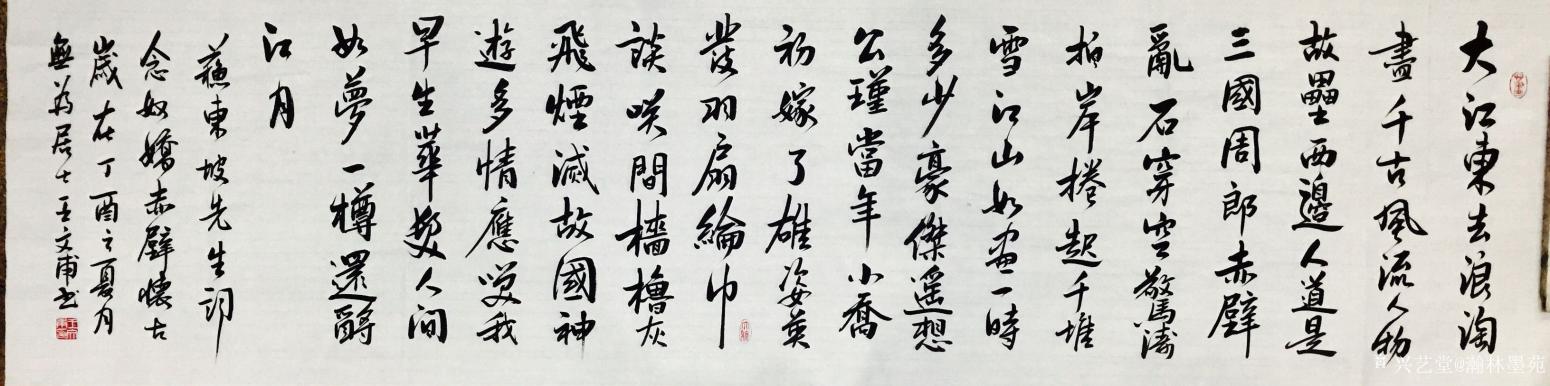 大江東去浪淘
盡千古風流人物
故壘西邊人道是
三國周郎赤壁
亂石穿空驚濤
拍岸捲起千堆
雪江山如畫一時
多少豪傑遥想
公瑾當年小喬
初嫁了雄姿英
發羽扇綸巾
談咲間檣櫓灰
飛煙滅故國神
遊多情應笑我
早生華髮人间
如夢一樽還酹
江月
蘇東坡先生詞
念奴嬌赤壁懷古
歲在丁酉之夏月
無為居士王文甫书
兴艺堂@瀚林墨苑